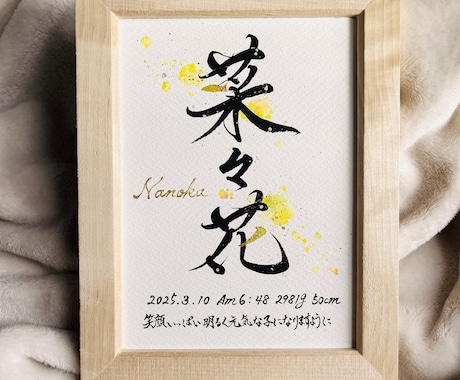 菜々花
Nanoka
2025.3.10 Am6:48 2981g 50cm
笑顔いっぱい明るく元気な子になりますように